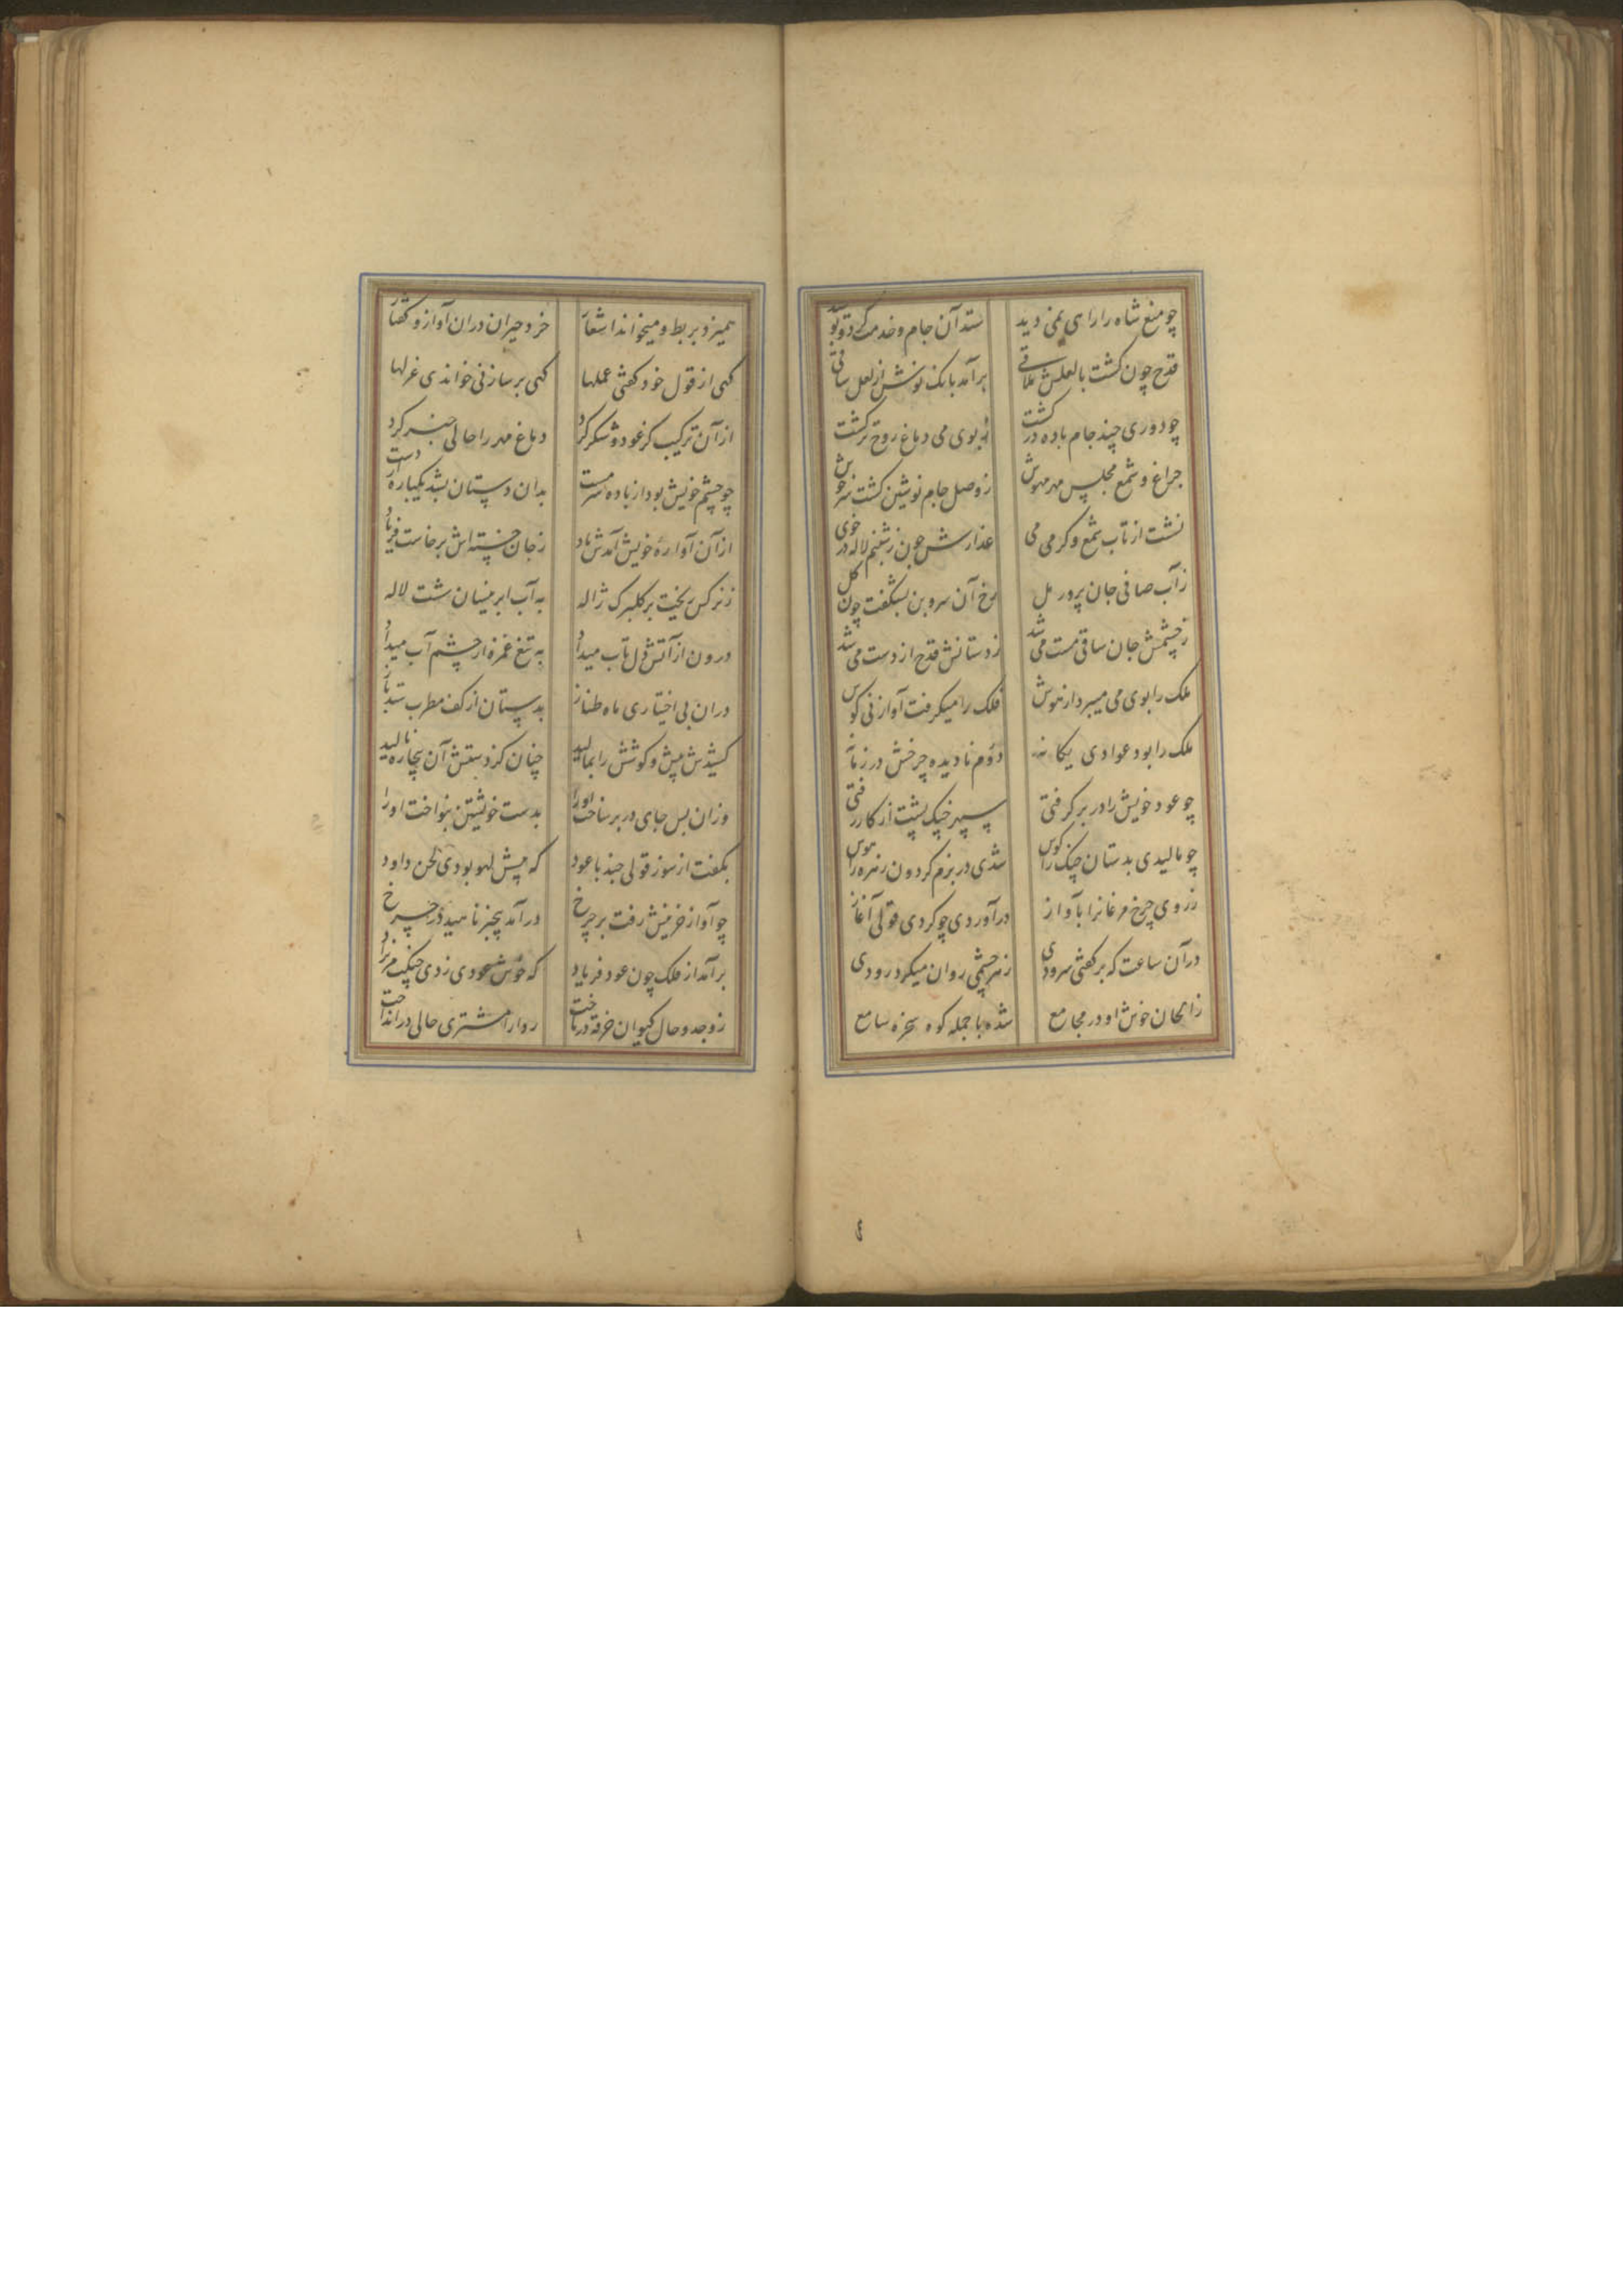 چو منع شاه را رای نمی دید
ستد آن جام و خدمت کرد و
قدح چون کشت با لعلش ملاقی
برآمد بانک نوش از لعل ساقی
چو دوری چند جام باده در کشت
ز بوی می دماغ روح تر کشت
چراغ و شمع مجلس مهر مهوش
ز وصل جام نوشین کشت سرخوش
نشت از تاب شمع و کرمی می
عذارش چون ز شبنم لاله در خوی
ز آب صافی جان پرور مل
رخ آن سروبن بشکفت چون کل
ز چشمش جان ساقی مست می شد
ز دستانش قدح از دست می شد
ملک را بوی می میبرد از هوش
فلک را میکرفت آواز نی کوش
ملک را بود عوادی یکانه
دوم نادیده چرخش در زمانه
چو عود خویش را در بر کرفتی
سپهر چنک پشت از کار رفتی
چو مالیدی بدستان چنک را کوش
شدی در بزم کردون زهره را هوش
ز روی چرخ مرغانرا بآواز
درآوردی چو کردی قولی آغاز
در آن ساعت که بر کفتی سرودی
ز هر چشمی روان میکرد رودی
ز الحان خوش او در مجامع
شده با جمله کوه سخره سامع
همیزد بربط و میخواند اشعار
خرد حیران دران آواز و کفتار
کهی از قول خود کفتی عملها
کهی بر ساز نی خواندی غزلها
از آن ترکیب کز عود و شکر کرد
دماغ مهر را حالی خبر کرد
چو چشم خویش بود از باده سرمست
بدان دستان بشد یکباره از دست
از آن آواره خویش آمدش یاد
ز جان خسته اش برخاست فریاد
ز نرکس ریخت بر کلبرک ژاله
به آب ابر نیسان شست لاله
درون از آتش دل تاب میداد
به تیغ غمزه از چشم آب میداد
دران بی اختیاری ماه طناز
بدستان از کف مطرب ستد باز
کشیدش پیش و کوشش را بمالید
چنان کز دستش آن بیچاره نالید
وزان پس جای در بر ساخت اورا
بدست خویشتن بنواخت اورا
بکفت از سوز قولی چند با عود
که پیش لهو بودی لحن داود
چو آواز حزینش رفت بر چرخ
درآمد نیز ناهید در چرخ
برآمد از فلک چون عود فریاد
که خوش زدی چنکت مریزاد
ز وجد و حال کیوان خرقه در باخت
ردا را مشتری حالی درانداخت